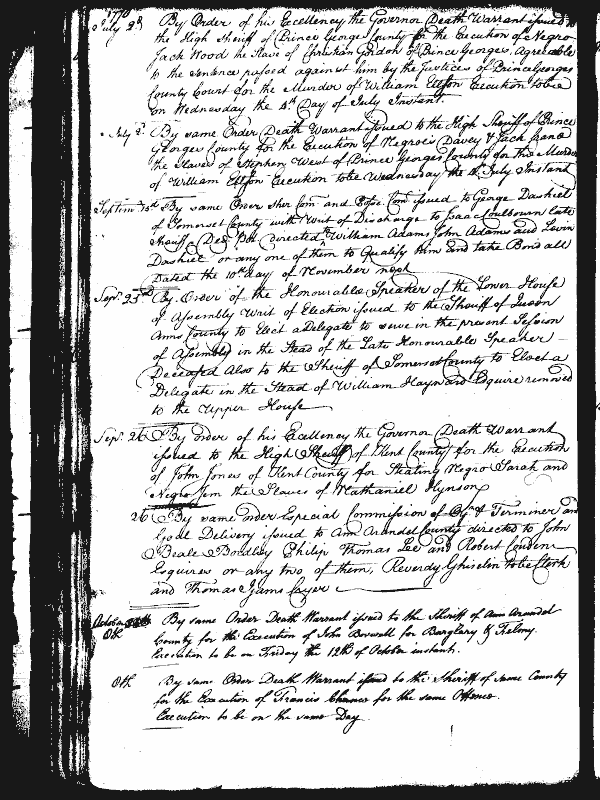 1770
July 2d By Order of his Excellency the Governor Death Warrant issued to
the High Sheriff of Prince Georges County for the Execution of Negro
Jack Wood the Slave of Christian Gordon of Prince Georges, Agreeable
to the Sentence passed against him by the Justices of Prince Georges
County Court for the Murder of William Elson Execution to be
on Wednesday the 4th Day of July Instant.
July 2d By same Order Death Warrant issued to the High Sheriff of Prince
Georges County for the Execution of Negroes Davey & Jack
the Slaves of Stephen West of Prince Georges County for the Murder
of William Elson Execution to be Wednesday the 4th July Instant
By same Order Sher Com and issued to George Dashiel
of Somerset County with Writ of Discharge to Isaac Coulbourn late
Sheriff, Ded. Pot. directed to William Adams, John Adams and Levin
Dashiel or any one of them to Qualify him and take Bond all
Dated the 10th day of November next
Sept. 25th By Order of the Honourable Speaker of the Lower House
of Assembly Writ of Election issued to the Sheriff of Queen
Anns County to Elect a Delegate to serve in the present Session
of Assembly in the Stead of the Late Honourable Speaker
Deceased Also to the Sheriff of Somerset County to Elect a
Delegate in the Stead of William Hayward Esquire removed
to the Upper House
Sept. 26 By order of his Excellency the Governor Death Warrant
issued to the High Sheriff of Kent County for the Execution
of John Jones of Kent County for Stealing Negro Sarah and
Negro Jem the Slaves of Nathaniel Hynson
26 By same order Especial Commission of Oyr & Terminer and
Goal Delivery issued to Ann Arundel County directed to John
Beale Bordley Philip Thomas Lee and Robert Couden
Esquires or any two of them, Reverdy Ghiselin to be Clerk
and Thomas Jams Cryer
October
8th By same Order Death Warrant issued to the Sheriff of Ann Arundel
County for the Execution of John Boswell for Burglary & Felony.
Execution to be on Friday the 12th of October instant.
8th By same Order Death Warrant issued to the Sheriff of same County
for the Execution of Francis for the same Offence
Execution to be on the same Day